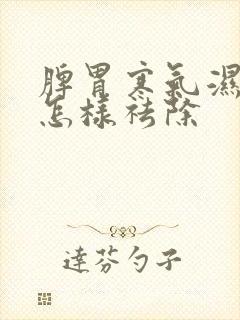 脾胃寒氣濕
怎樣祛除
達芬勺子